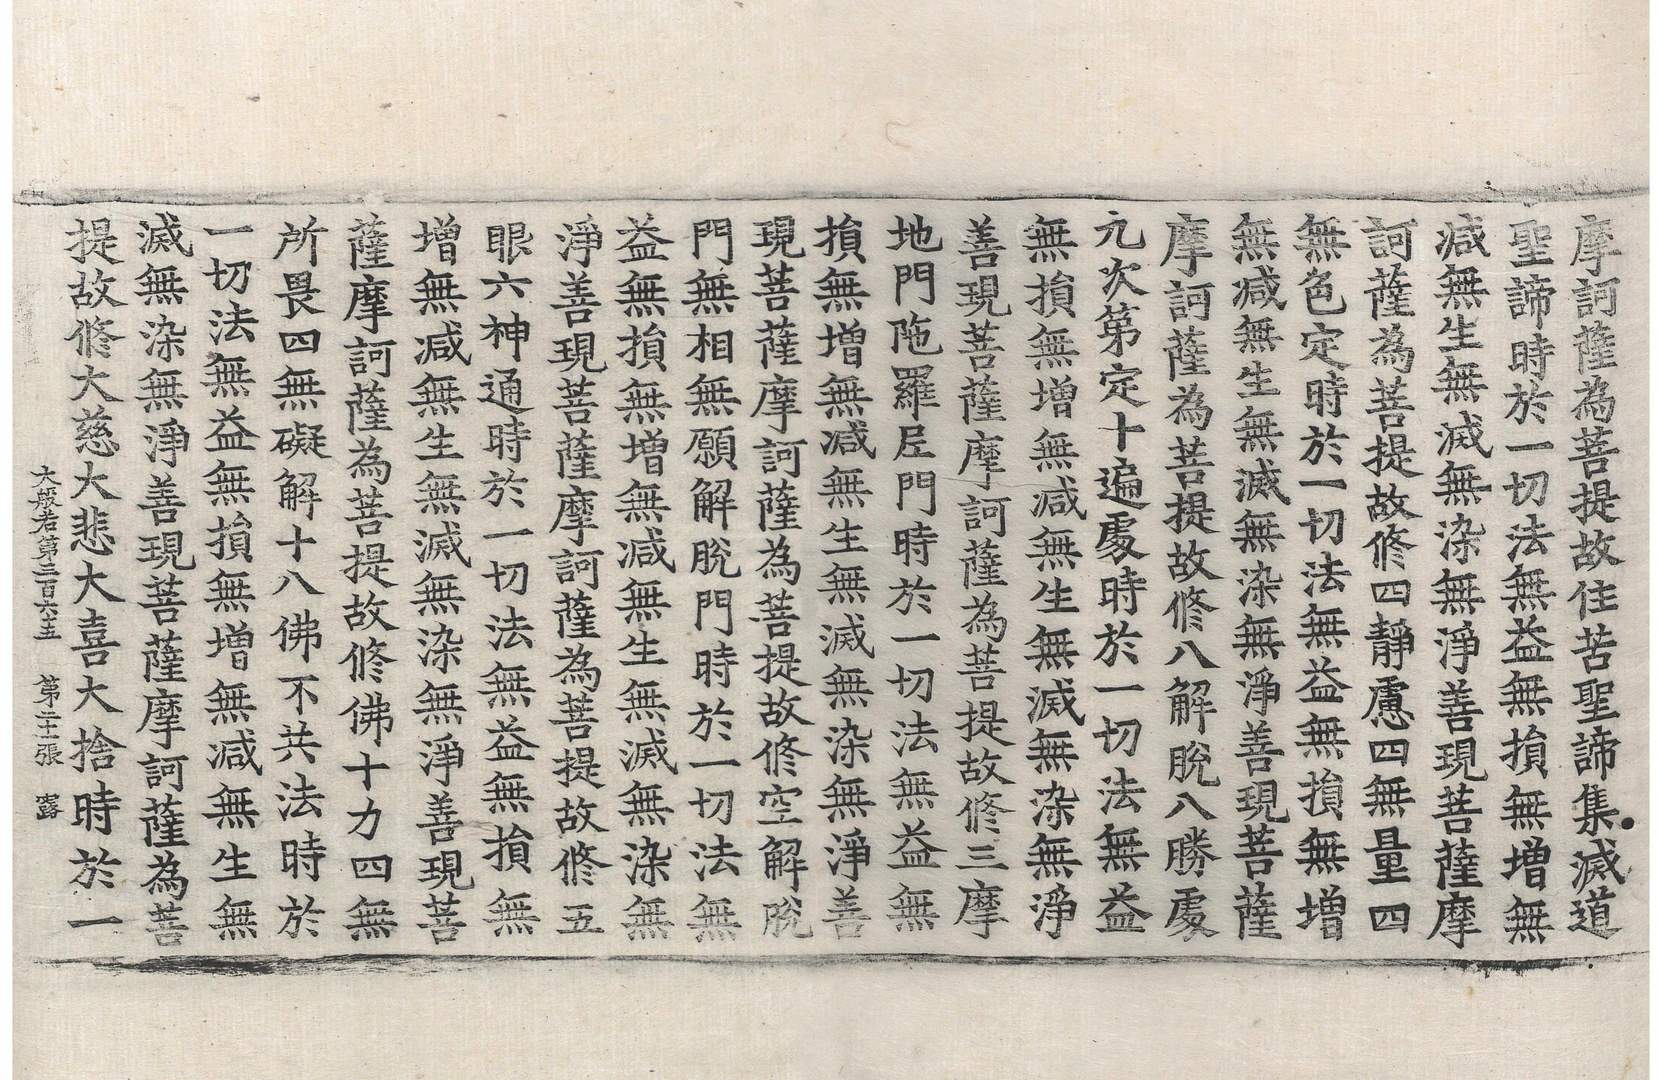 摩訶薩為菩提故住苦聖諦集滅道
聖諦時於一切法無益無損無增無
減無生無滅無染無淨善現菩薩摩
訶薩為菩提故修四靜慮四無量四
無色定時於一切法無益無損無增
無減無生無滅無染無淨善現菩薩
摩訶薩為菩提故修八解脫八勝處
九次第定十遍處時於一切法無益
無損無增無減無生無滅無染無淨
善現菩薩摩訶薩為菩提故修三摩
地門陁羅尼門時於一切法無益無
損無增無減無生無滅無染無淨善
現菩薩摩訶薩為菩提故修空解脫
門無相無願解脫門時於一切法無
益無損無增無減無生無滅無染無
淨善現菩薩摩訶薩為菩提故修五
眼六神通時於一切法無益無損無
增無減無生無滅無染無淨善現菩
薩摩訶薩為菩提故修佛十力四無
所畏四無礙解十八佛不共法時於
一切法無益無損無增無減無生無
滅無染無淨善現菩薩摩訶薩為菩
提故修大慈大悲大喜大捨時於一
大般若第三百六十五 第二十一張 露